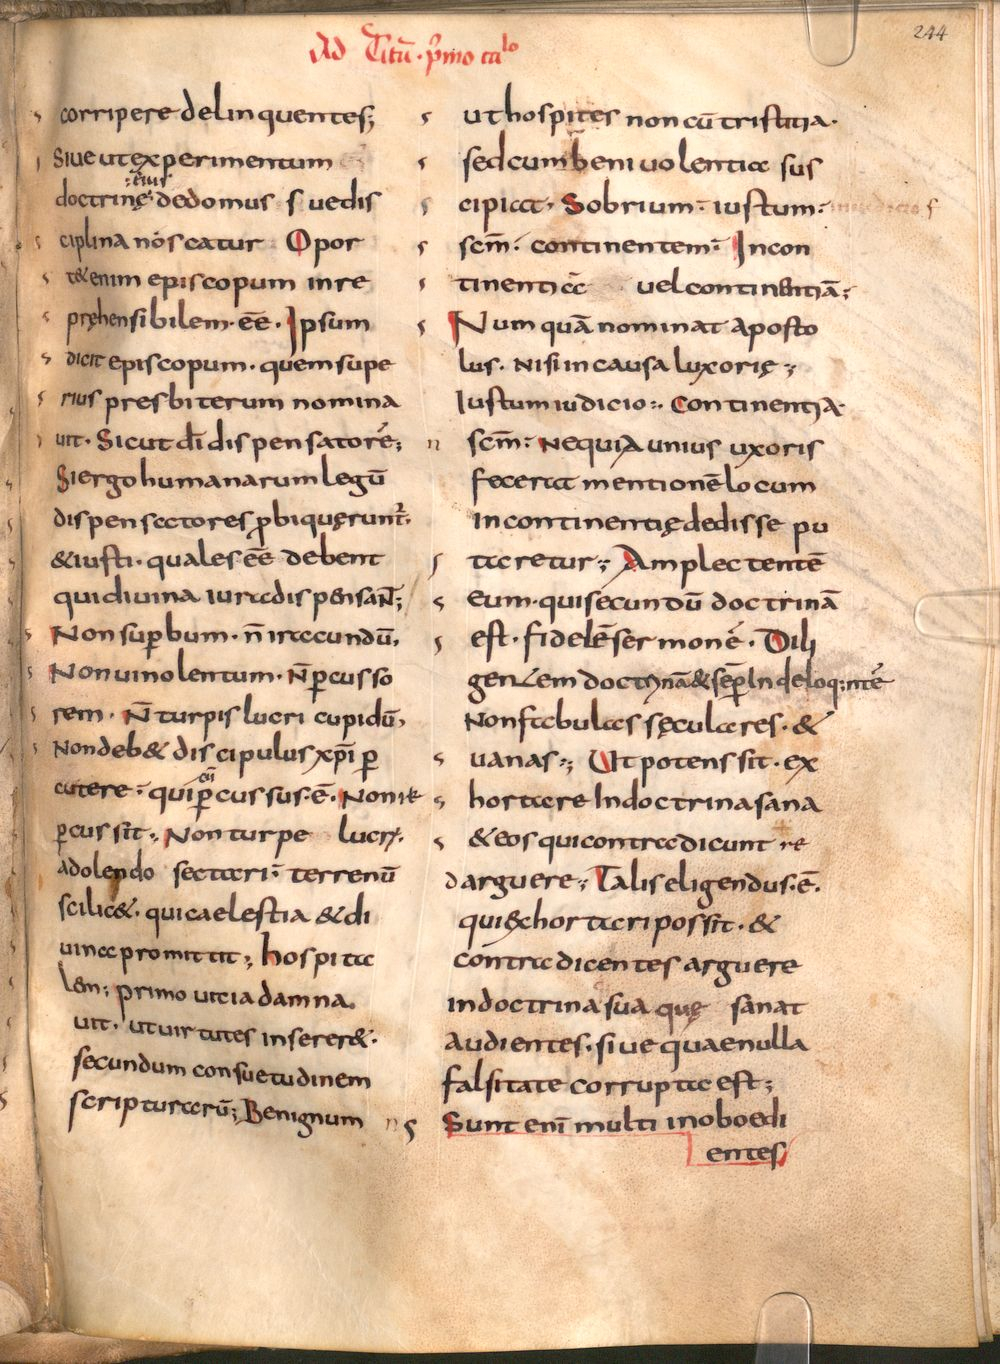 244
Ad Titū · p̄mo ca lo
corripere delinquentes;
Siue ut experimentum
eius
doctrinę dedomus suedis
ciplina noscatur Opor
t& enim episcopum inre
pręhensibilem · eē̄ · Ipsum
dicit episcopum · quem supe
rius presbiterum nomina
uit · Sicut dī dispensatorē;
Si ergo humanarum legū
dispensatores ꝓbi quęrunt̄ ·
& iusti · quales eē̄ debent
qui diuina iura dispensaN̄;
Non suꝑbum · n̄ iracundū,
Non uinolentum · N̄ ꝑcusso
rem · N̄ turpis lucri cupidū,
Non deb& discipulus xp̄i ꝑ
cutere · qui ꝑcussus · ē · Non re
ꝑcussit · Non turpe lucrū ·
adolendo sectari · terrenū
scilic& · qui caelestia & di
uina promittit; hospita
lem; primo uitia damna
uit · ut uirtutes inserer& ·
secundum consuetudinem
scripturarū; Benignum
ut hospites non cū tristitia ·
sed cum beniuolentia sus
cipiat · Sobrium · iustum ·
sc̄m · continentem · Incon
tinentia uel continentiā;
Num quā nominat aposto
lus · nisi in causa luxorię;
Iustum iudicio · Continentia
sc̄m · Nequia unius uxoris
fecerat mentionē locum
incontinentię dedisse pu
taretur; Amplectentē
eum · qui secundū doctrinā
est · fidelē sermonē · Dili
gentem doctrinā & seꝑ In deloq;ntē
Non fabulas sęculares · &
uanas; Ut potens sit · ex
hortare In doctrina sana
& eos qui contradicunt re
darguere; Talis eligendus · ē ·
qui & exhortari possit · &
contradicentes arguere
in doctrina sua quę sanat
audientes · siue quae nulla
falsitate corrupta est;
Sunt enī multi inoboedi
entes